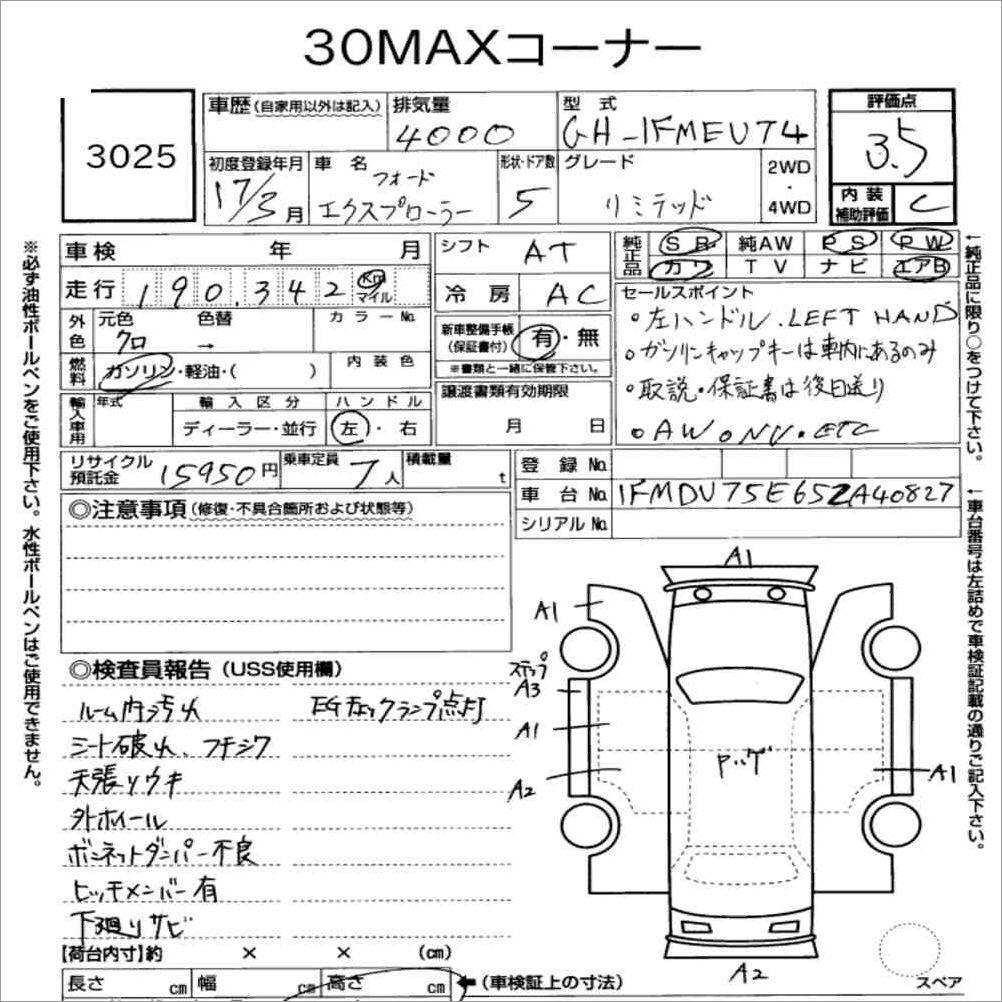 30MAXコーナー
3025
車歴 (自家用以外は記入)
排気量
4000
型式
GH-1FMEU74
評価点
3.5
初度登録年月
17/3月
車名
フォード
エクスプローラー
形状・ドア数
5
グレード
リミテッド
2WD
・
4WD
内装
補助評価
C
車検 年 月
シフト
AT
純正品
SR 純AW PS PW
カワ TV ナビ エアB
走行 190.342 Km マイル
冷房
AC
セールスポイント
・左ハンドル. LEFT HAND
・ガソリンキャップキーは車内にあるのみ
・取説・保証書は後日送り
・AW。NV・ETC
外色
元色 色替
クロ →
カラーNo.
新車整備手帳
(保証書付)
有・無
※書類と一緒に保管下さい。
燃料
ガソリン・軽油・( )
内装色
譲渡書類有効期限
月 日
輸入車用
年式
輸入区分
ディーラー・並行
ハンドル
左・右
リサイクル
預託金
15950円
乗車定員
7人
積載量
t
登録No.
車台No.
1FMDU75E65ZA40827
シリアルNo.
◎注意事項 (修復・不具合箇所および状態等)
◎検査員報告 (USS使用欄)
ルーム内汚れ
EGチェックランプ点灯
シート破れ、フチシワ
天張りウキ
外ホイール
ボンネットダンパー不良
ヒッチメンバー有
下廻りサビ
A1
A1
ステップ
A3
A1
A2
A1
A2
スペア
【荷台内寸】約 × × (cm)
長さ cm 幅 cm 高さ cm
←(車検証上の寸法)
※必ず油性ボールペンをご使用下さい。水性ボールペンはご使用できません。
←純正品に限り○をつけて下さい。
←車台番号は左詰めで車検証記載の通りご記入下さい。